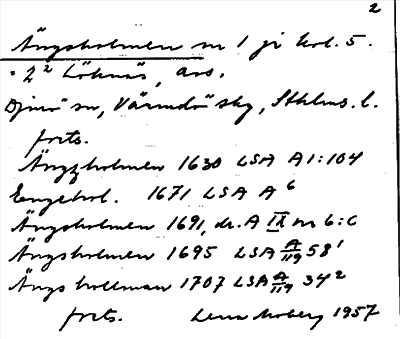 2
Ängsholmen nr 1 jr kol. 5.
= 2² Löknäs, avs.
Djurö sn, Värmdö skg, Sthlms. l.
forts.
Ängzholmen 1630 LSA A1:104
Engehol. 1671 LSA A 6
Ängsholmen 1691, dr. A IX nr 6:c
Ängsholmen 1695 LSA A/119 58¹
Ängshollman 1707 LSA A/119 34²
forts. Lena Moberg 1957